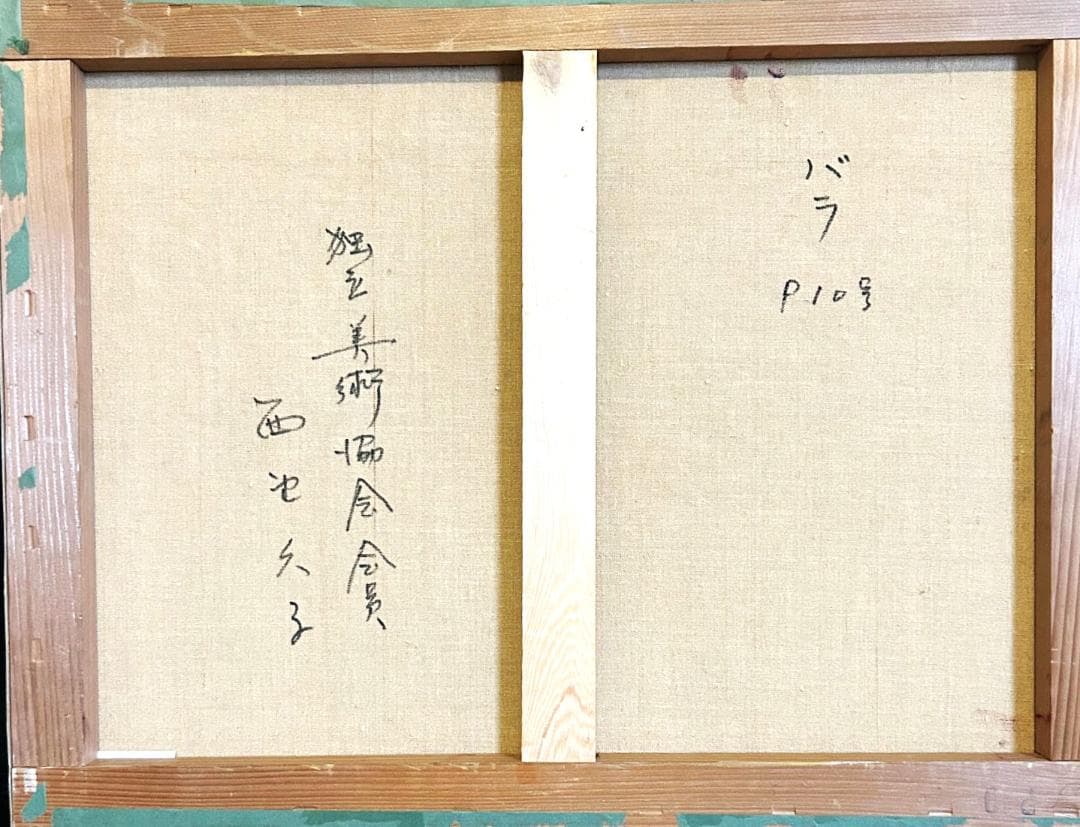 バラ
P10号
独立美術協会会員
西池久子